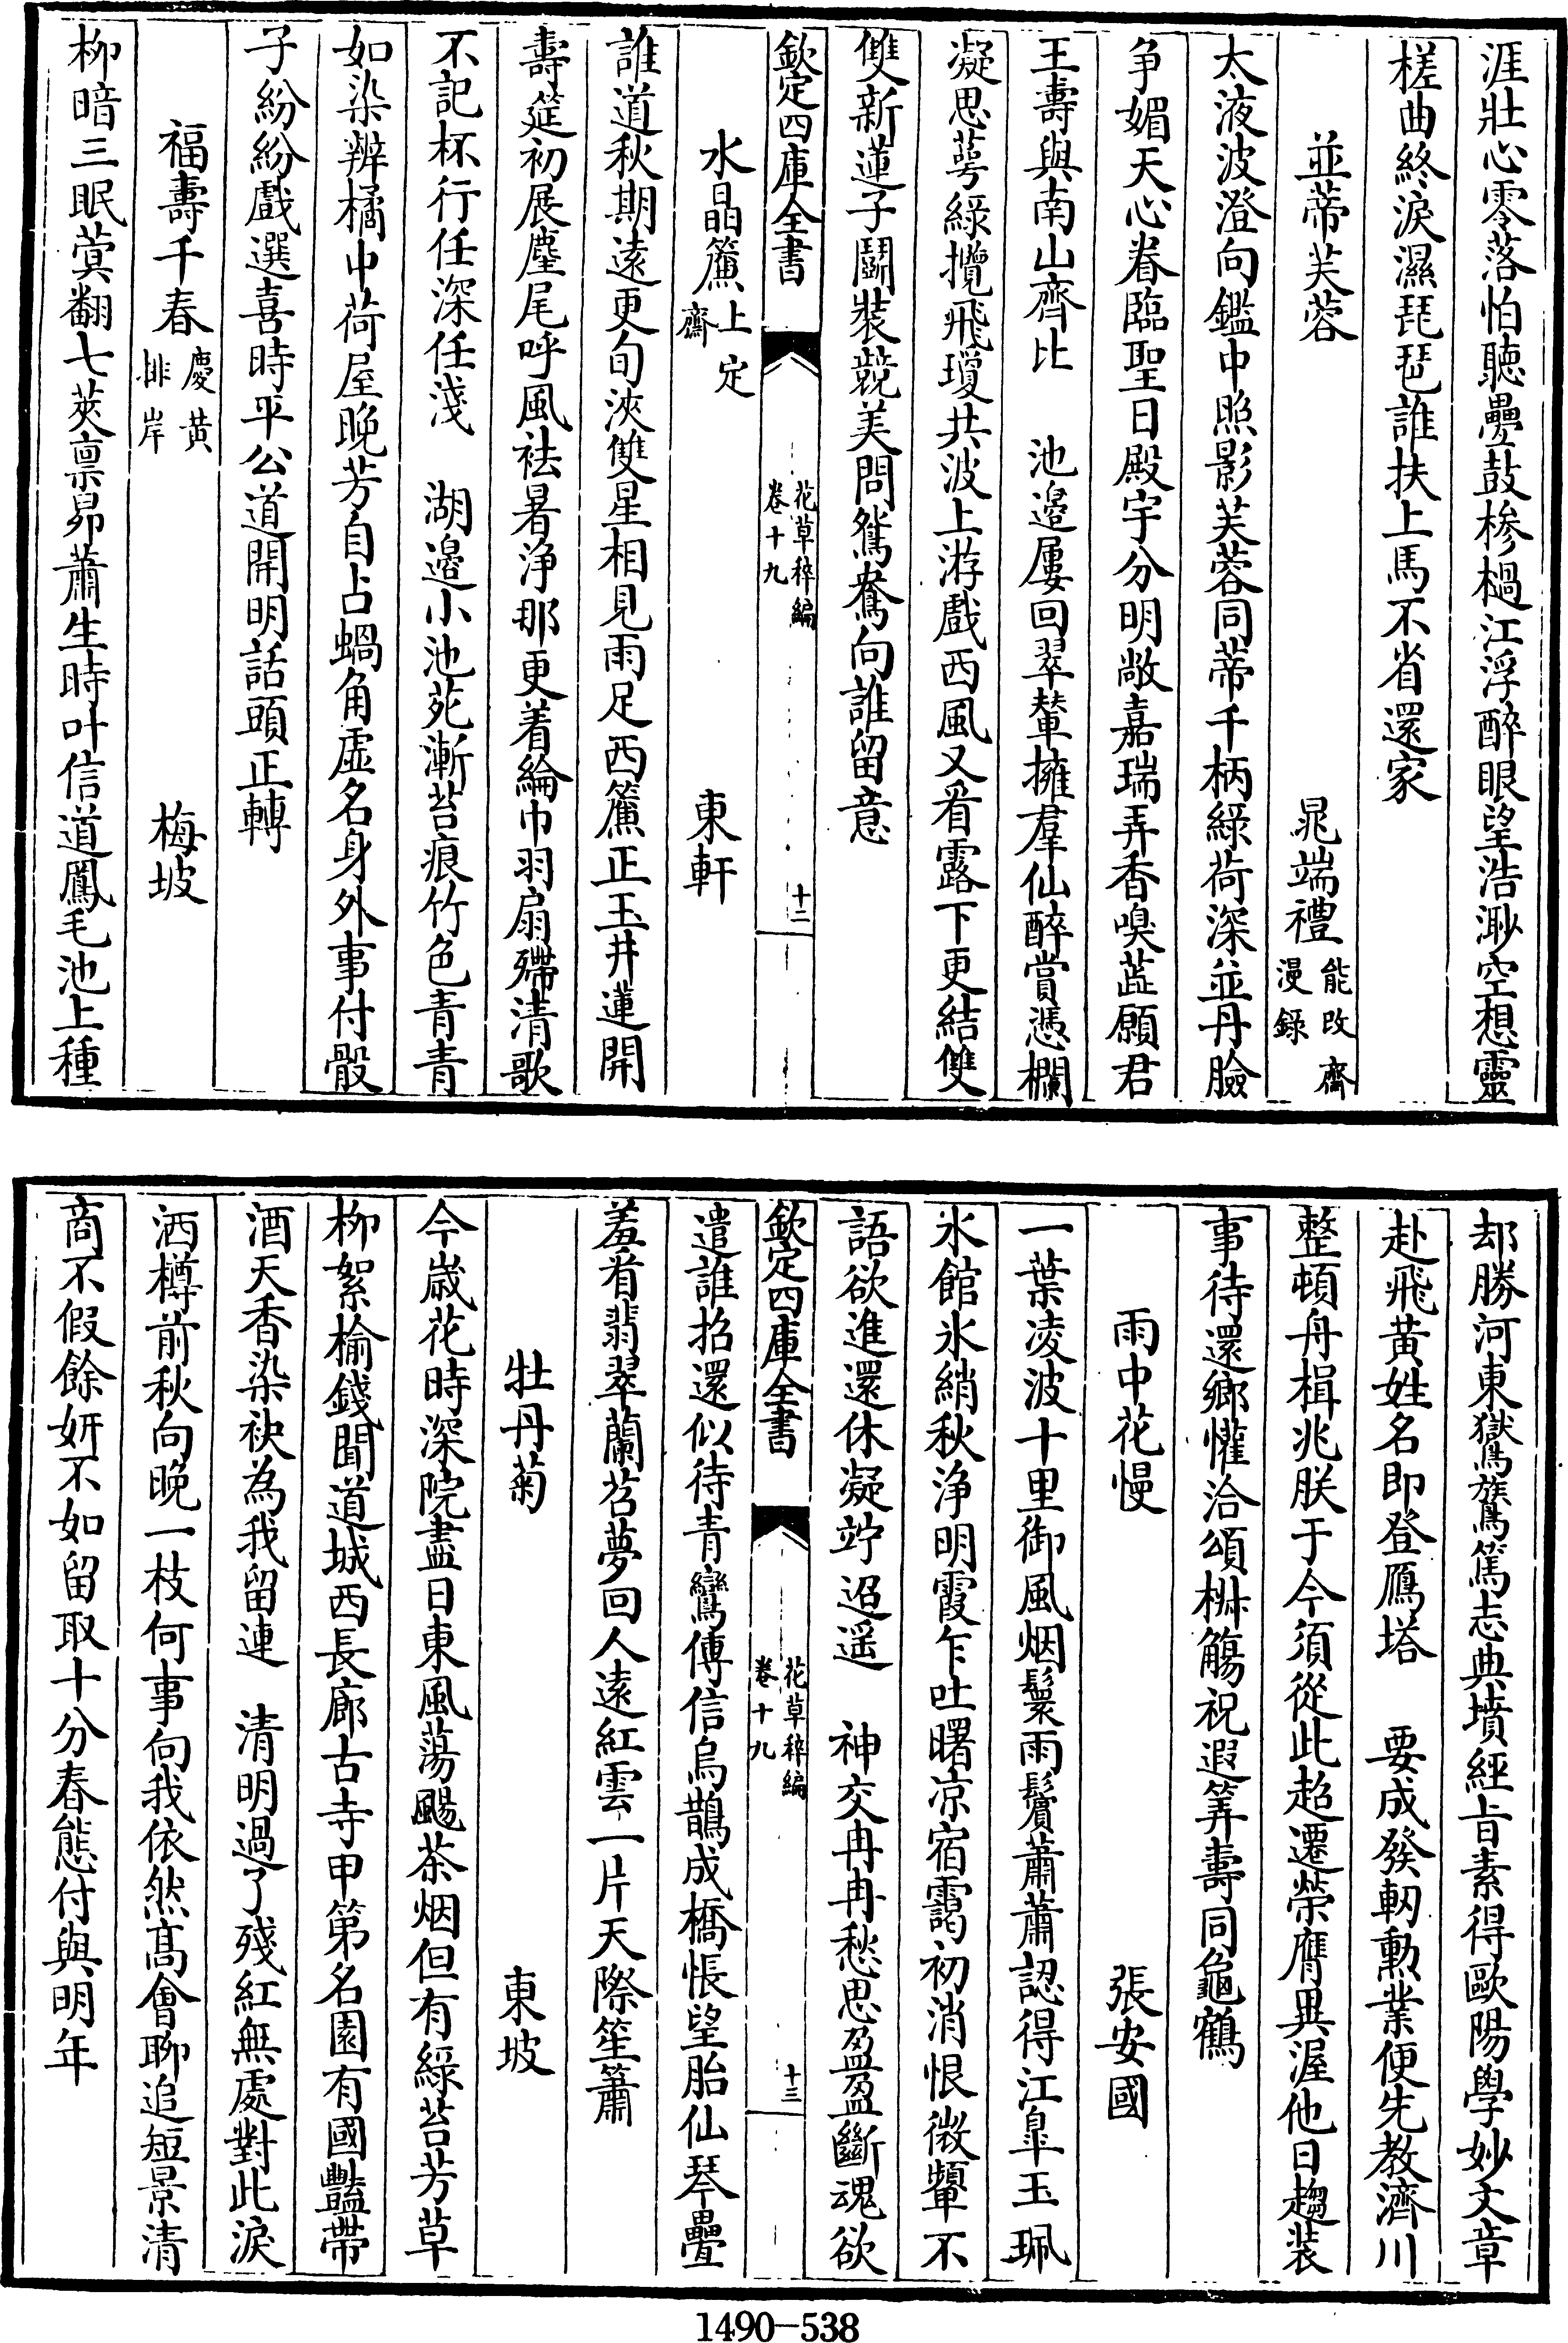 涯壯心零落怕聽疊鼓摻檛江浮醉眼望浩渺空想靈
槎曲終淚濕琵琶誰扶上馬不省還家
並蒂芙蓉 晁端禮 能改齋漫録
太液波澄向鑑中照影芙蓉同蒂千柄緑荷深並丹臉
争媚天心眷臨聖日殿宇分明敞嘉瑞弄香嗅蕋願君
王壽與南山齊比 池邉屢回翠輦擁羣仙醉賞憑欄
凝思萼緑攬飛瓊共波上游戲西風又看露下更結雙
雙新蓮子鬬裝競美問鴛鴦向誰留意
欽定四庫全書 花草稡編 卷十九 十二
水晶簾 上定齋 東軒
誰道秋期遠更旬浹雙星相見雨足西簾正玉井蓮開
壽筵初展麈尾呼風袪暑浄那更着綸巾羽扇殢清歌
不記杯行任深任淺 湖邉小池苑漸苔痕竹色青青
如染辨橘中荷屋晚芳自占蝸角虚名身外事付骰
子紛紛戲選喜時平公道開明話頭正轉
福壽千春 慶黄排岸 梅坡
柳暗三眠蓂翻七莢禀昴蕭生時叶信道鳳毛池上種
却勝河東鸑鷟篤志典墳經旨素得歐陽學妙文章
赴飛黄姓名即登鴈塔 要成發軔勲業便先教濟川
整頓舟楫兆朕于今須從此超遷榮膺異渥他日趨装
事待還鄉懽洽頌椒觴祝遐筭壽同龜鶴
雨中花慢 張安國
一葉凌波十里御風烟鬟雨鬢蕭蕭認得江臯玉珮
氷館氷綃秋浄明霞乍吐曙凉宿靄初消恨微顰不
語欲進還休凝竚迢遥 神交冉冉愁思盈盈斷魂欲
欽定四庫全書 花草稡編 卷十九 十三
遣誰招還似待青鸞傳信烏鵲成橋悵望胎仙琴疊
羞看翡翠蘭苕夢回人遠紅雲一片天際笙簫
牡丹菊 東坡
今歳花時深院盡日東風蕩颺茶烟但有緑苔芳草
柳絮榆錢聞道城西長廊古寺甲第名園有國豔帶
酒天香染袂為我留連 清明過了殘紅無處對此淚
洒樽前秋向晚一枝何事向我依然髙會聊追短景清
商不假餘妍不如留取十分春態付與明年
1490-538